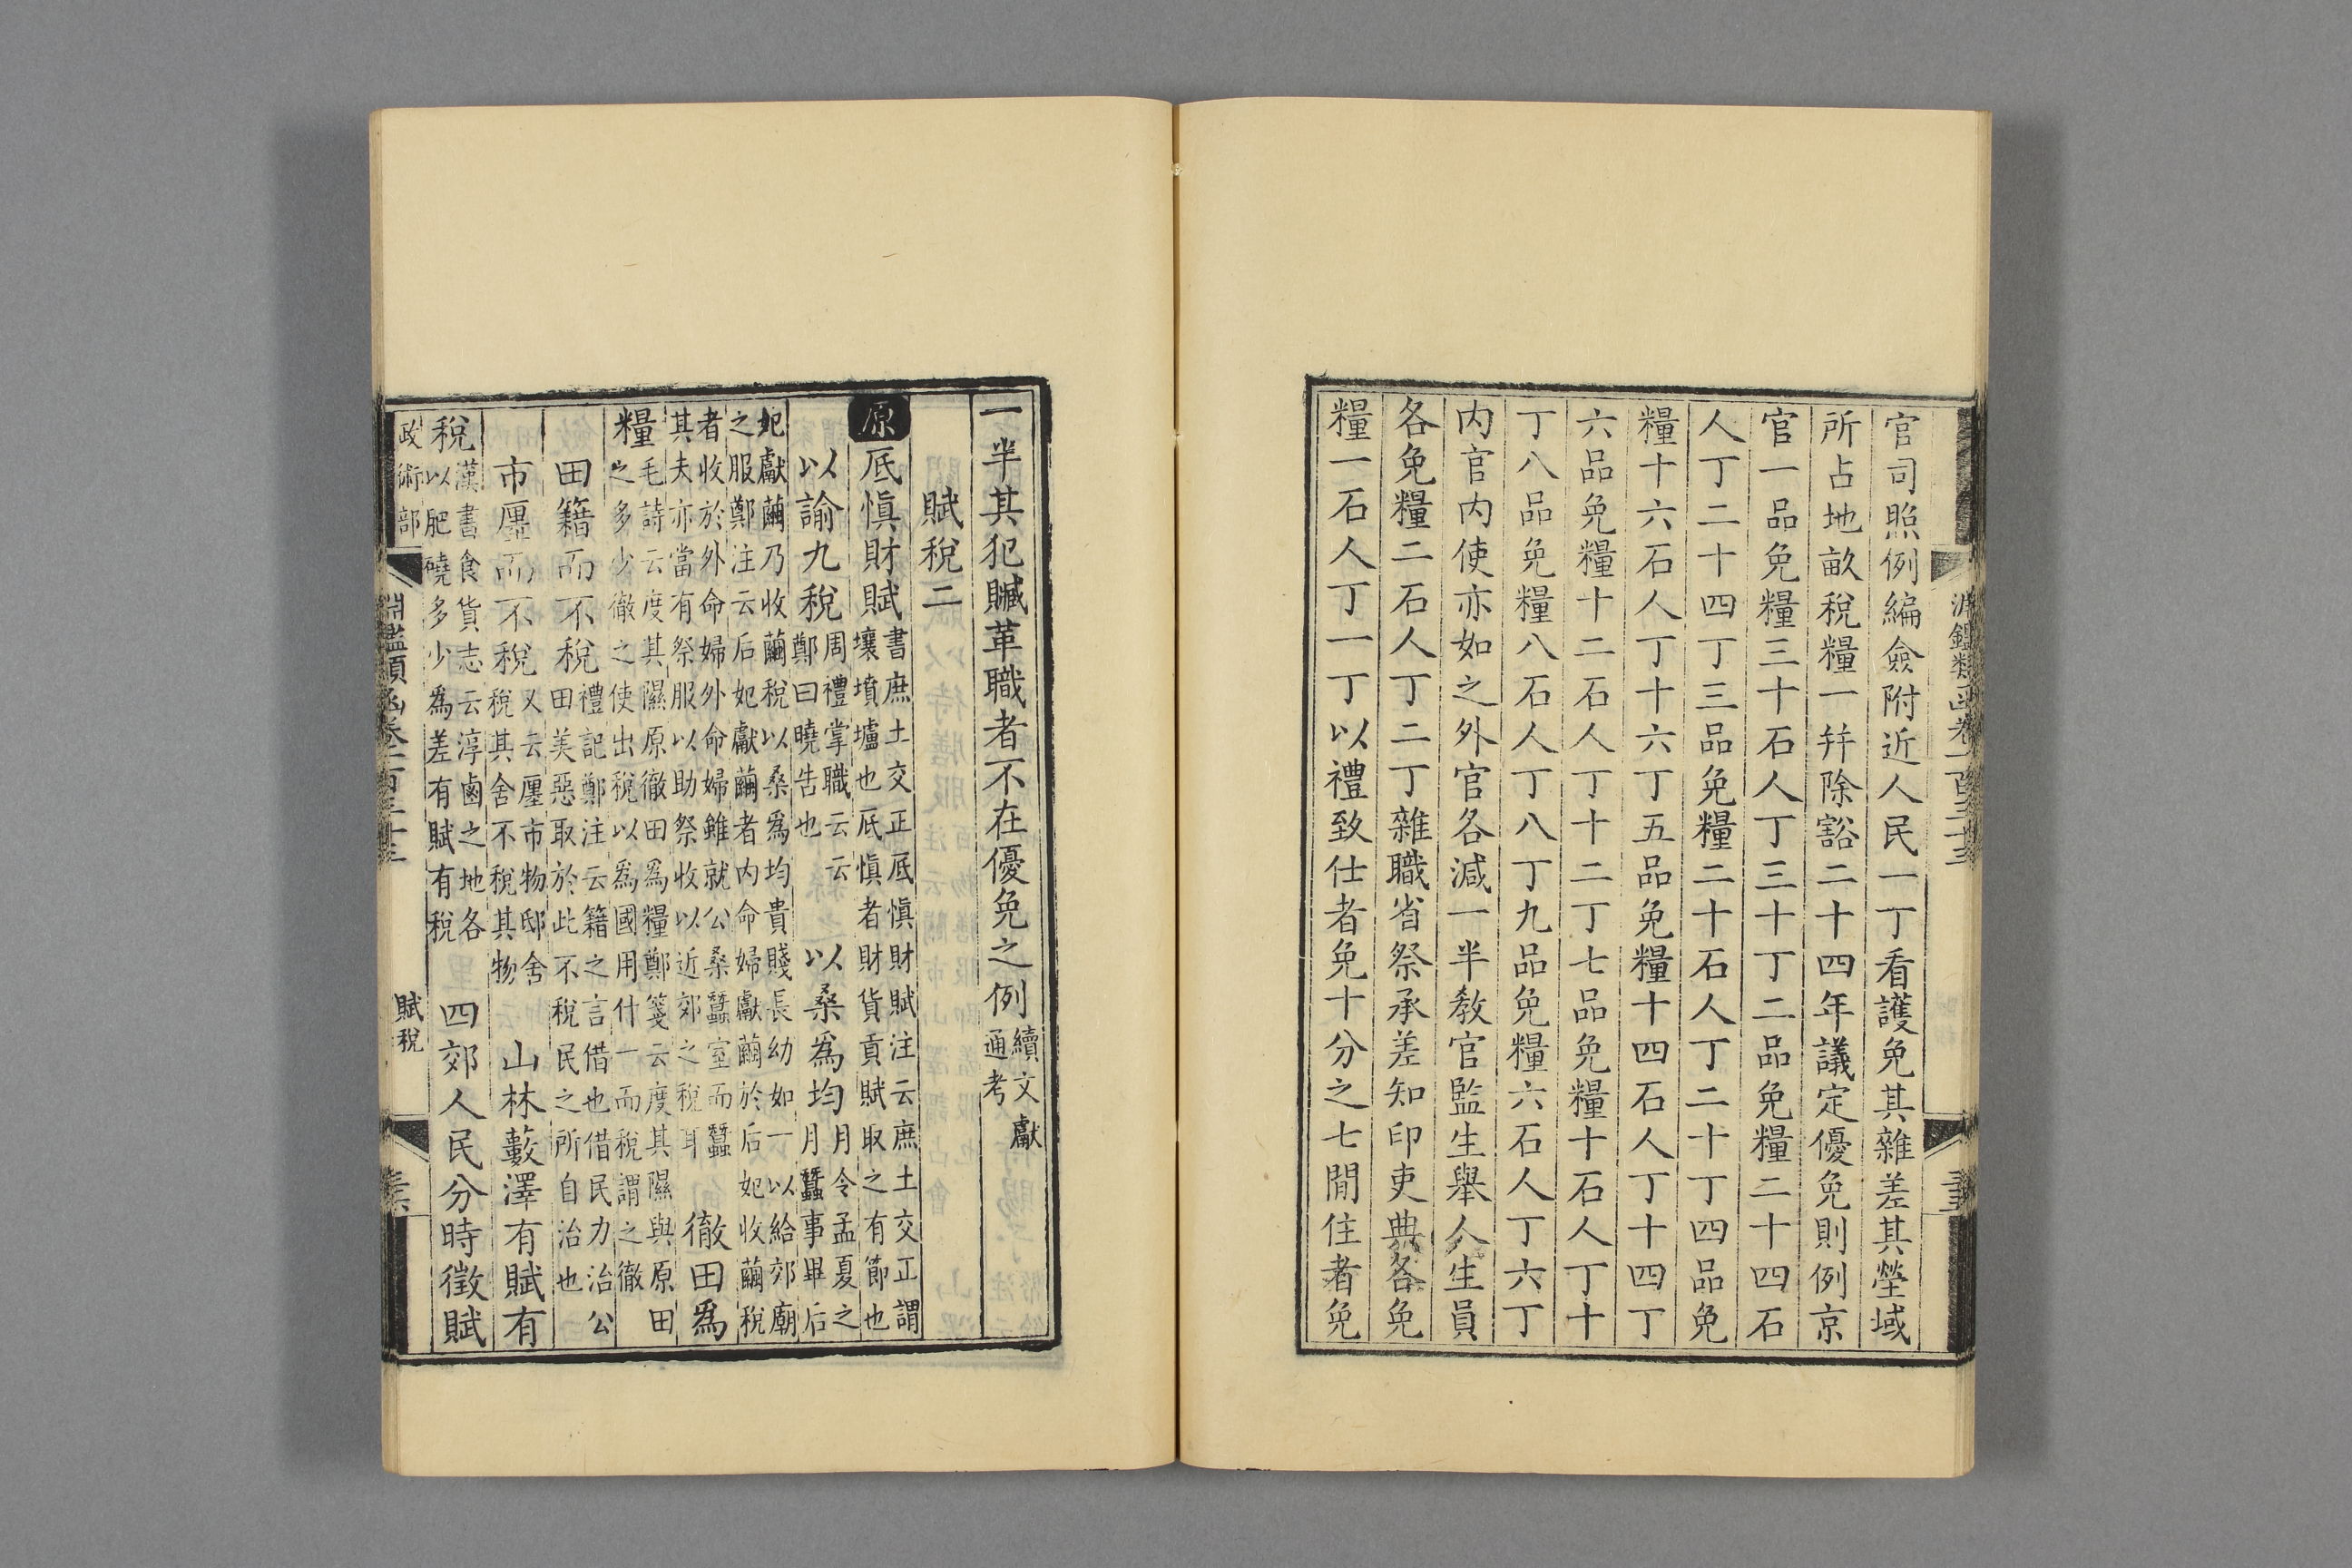 官司照例編僉附近人民一丁看護免其雜差其塋域
所占地畝稅糧一幷除豁二十四年議定優免則例京
官一品免糧三十石人丁三十丁二品免糧二十四石
人丁二十四丁三品免糧二十石人丁二十丁四品免
糧十六石人丁十六丁五品免糧十四石人丁十四丁
六品免糧十二石人丁十二丁七品免糧十石人丁十
丁八品免糧八石人丁八丁九品免糧六石人丁六丁
內官內使亦如之外官各減一半教官監生舉人生員
各免糧二石人丁二丁雜職省祭承差知印吏典各免
糧一石人丁一丁以禮致仕者免十分之七閒住者免
一半其犯贓革職者不在優免之例續文獻通考
賦稅二
原 厎愼財賦書庶土交正厎愼財賦注云庶土交正謂壤墳壚也厎愼者財貨貢賦取之有節也
以諭九稅周禮掌職云云鄭曰曉告也 以桑爲均月令孟夏之月蠶事畢后
妃獻繭乃收繭稅以桑爲均貴賤長幼如一以給郊廟之服鄭注云后妃獻繭者內命婦獻繭於后妃收繭稅
者收於外命婦外命婦雖就公桑蠶室而蠶其夫亦當有祭服以助祭收以近郊之稅耳 徹田爲
糧毛詩云度其隰原徹田爲糧鄭箋云度其隰與原田之多少徹之使出稅以爲國用什一而稅謂之徹
田籍而不稅禮記鄭注云籍之言借也借民力治公田美惡取於此不稅民之所自治也
市廛而不稅又云廛市物邸舍稅其舍不稅其物 山林藪澤有賦有
稅漢書食貨志云淳鹵之地各以肥磽多少爲差有賦有稅 四郊人民分時徵賦
政術部 淵鑑類函卷一百三十三 賦稅